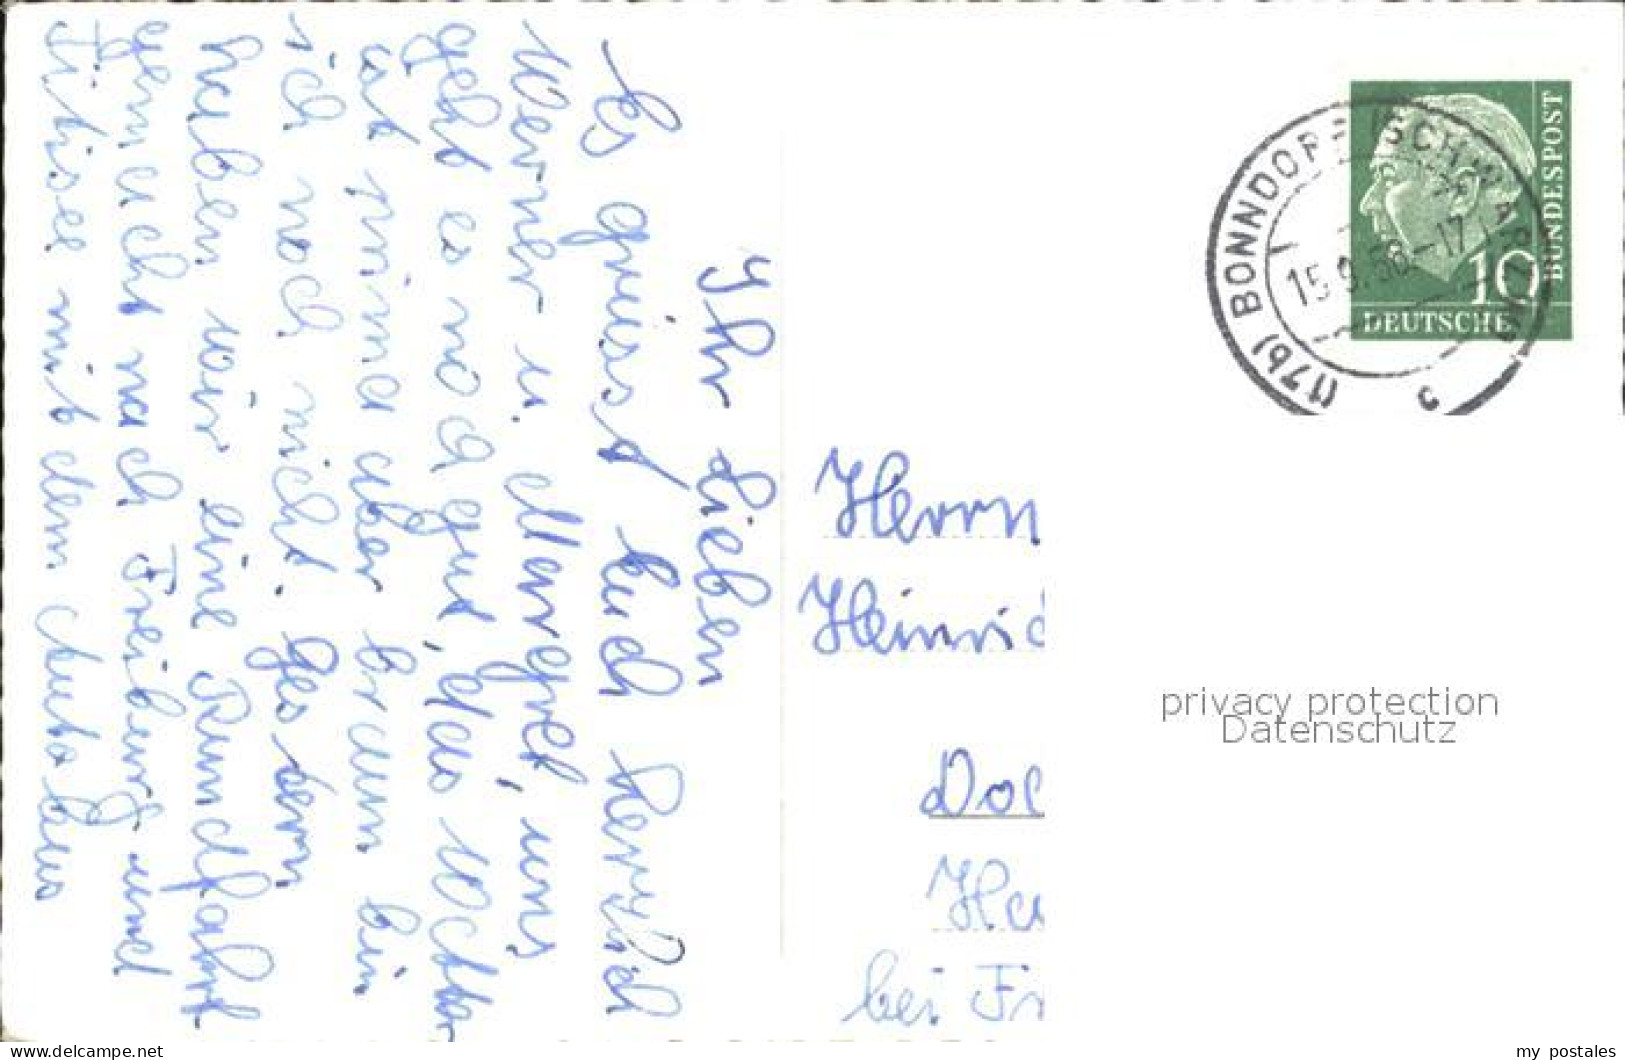 Ihr Lieben
Es grüsst Euch herzlich
Werner u. Margret, uns
geht es noch gut, das Wetter
ist prima aber braun bin
ich noch nicht. Gestern
haben wir eine Rundfahrt
gemacht nach Freiburg und
Titisee mit dem Autobus
BUNDESPOST
10
DEUTSCHE
(17b) BONNDORF (SCHWARZW)
15.9.56-17
c
Herrn
Heinric
Dol
Ha
bei Fr
privacy protection
Datenschutz
www.delcampe.net
my postales